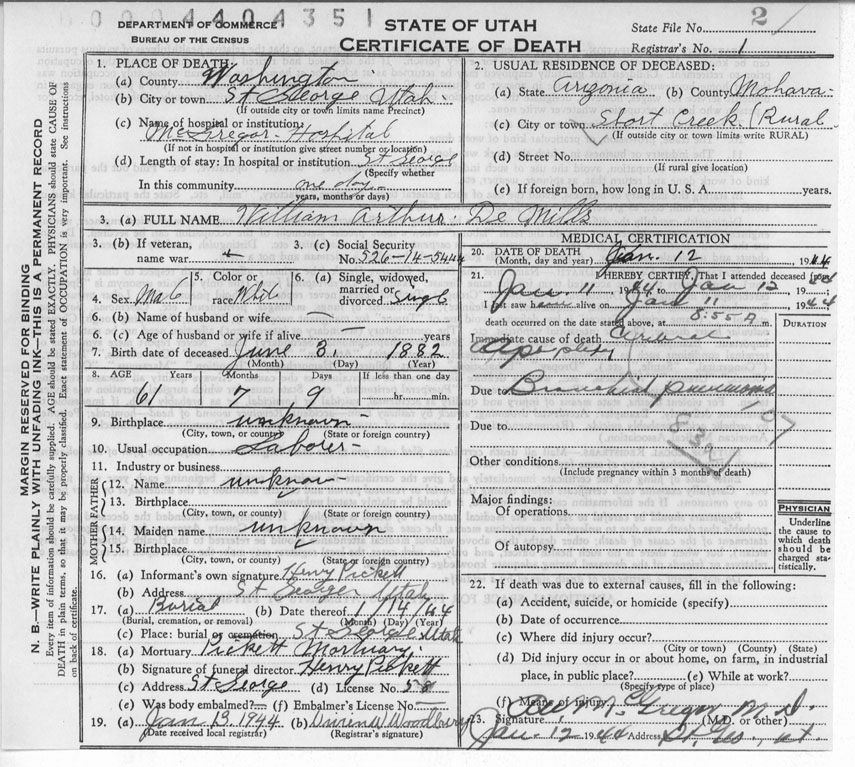 0004404351
DEPARTMENT OF COMMERCE
BUREAU OF THE CENSUS
STATE OF UTAH
CERTIFICATE OF DEATH
State File No. 2
Registrar's No. 1
MARGIN RESERVED FOR BINDING
N. B.—WRITE PLAINLY WITH UNFADING INK—THIS IS A PERMANENT RECORD
Every item of information should be carefully supplied. AGE should be stated EXACTLY. PHYSICIANS should state CAUSE OF
DEATH in plain terms, so that it may be properly classified. Exact statement of OCCUPATION is very important. See instructions
on back of certificate.
1. PLACE OF DEATH:
(a) County Washington
(b) City or town St George Utah
(If outside city or town limits name Precinct)
(c) Name of hospital or institution:
McGregor Hospital
(If not in hospital or institution give street number or location)
(d) Length of stay: In hospital or institution St George
(Specify whether
In this community one day
years, months or days)
2. USUAL RESIDENCE OF DECEASED:
(a) State Arizonia (b) County Mohava
(c) City or town Short Creek (Rural
(If outside city or town limits write RURAL)
(d) Street No.
(If rural give location)
(e) If foreign born, how long in U. S. A. years.
3. (a) FULL NAME William Arthur De Mills
3. (b) If veteran,
name war
3. (c) Social Security
No. 526-14-5444
4. Sex Male
5. Color or
race White
6. (a) Single, widowed,
married or
divorced Single
6. (b) Name of husband or wife
6. (c) Age of husband or wife if alive years
7. Birth date of deceased June 3, 1882
(Month) (Day) (Year)
8. AGE Years Months Days If less than one day
61 7 9 hr. min.
9. Birthplace unknown
(City, town, or county) (State or foreign country)
10. Usual occupation Laborer
11. Industry or business
FATHER
12. Name unknown
13. Birthplace
(City, town, or county) (State or foreign country)
MOTHER
14. Maiden name unknown
15. Birthplace
(City, town, or county) (State or foreign country)
16. (a) Informant's own signature Henry Pickett
(b) Address St George Utah
17. (a) Burial (b) Date thereof 1/14/44
(Burial, cremation, or removal) (Month) (Day) (Year)
(c) Place: burial or cremation St George Utah
18. (a) Mortuary Pickett Mortuary
(b) Signature of funeral director Henry Pickett
(c) Address St George (d) License No. 58
(e) Was body embalmed? (f) Embalmer's License No.
19. (a) Jan 13 1944 (b) Woodbury
(Date received local registrar) (Registrar's signature)
MEDICAL CERTIFICATION
20. DATE OF DEATH
(Month, day and year) Jan. 12, 1944
21. I HEREBY CERTIFY, That I attended deceased from
Jan. 11 1944 to Jan 12 1944
I last saw h alive on Jan 11 1944
death occurred on the date stated above, at 8:55 A m.
DURATION
Immediate cause of death Cerebral
Apoplexy
Due to Bronchial pneumonia
107
Due to
83a
Other conditions
(Include pregnancy within 3 months of death)
Major findings:
Of operations
Of autopsy
PHYSICIAN
Underline
the cause to
which death
should be
charged sta-
tistically.
22. If death was due to external causes, fill in the following:
(a) Accident, suicide, or homicide (specify)
(b) Date of occurrence
(c) Where did injury occur?
(City or town) (County) (State)
(d) Did injury occur in or about home, on farm, in industrial
place, in public place? (e) While at work?
(Specify type of place)
(f) Means of injury
23. Signature McGregor M.D.
(M.D. or other)
Jan-12-1944 Address St. Geo., Ut.